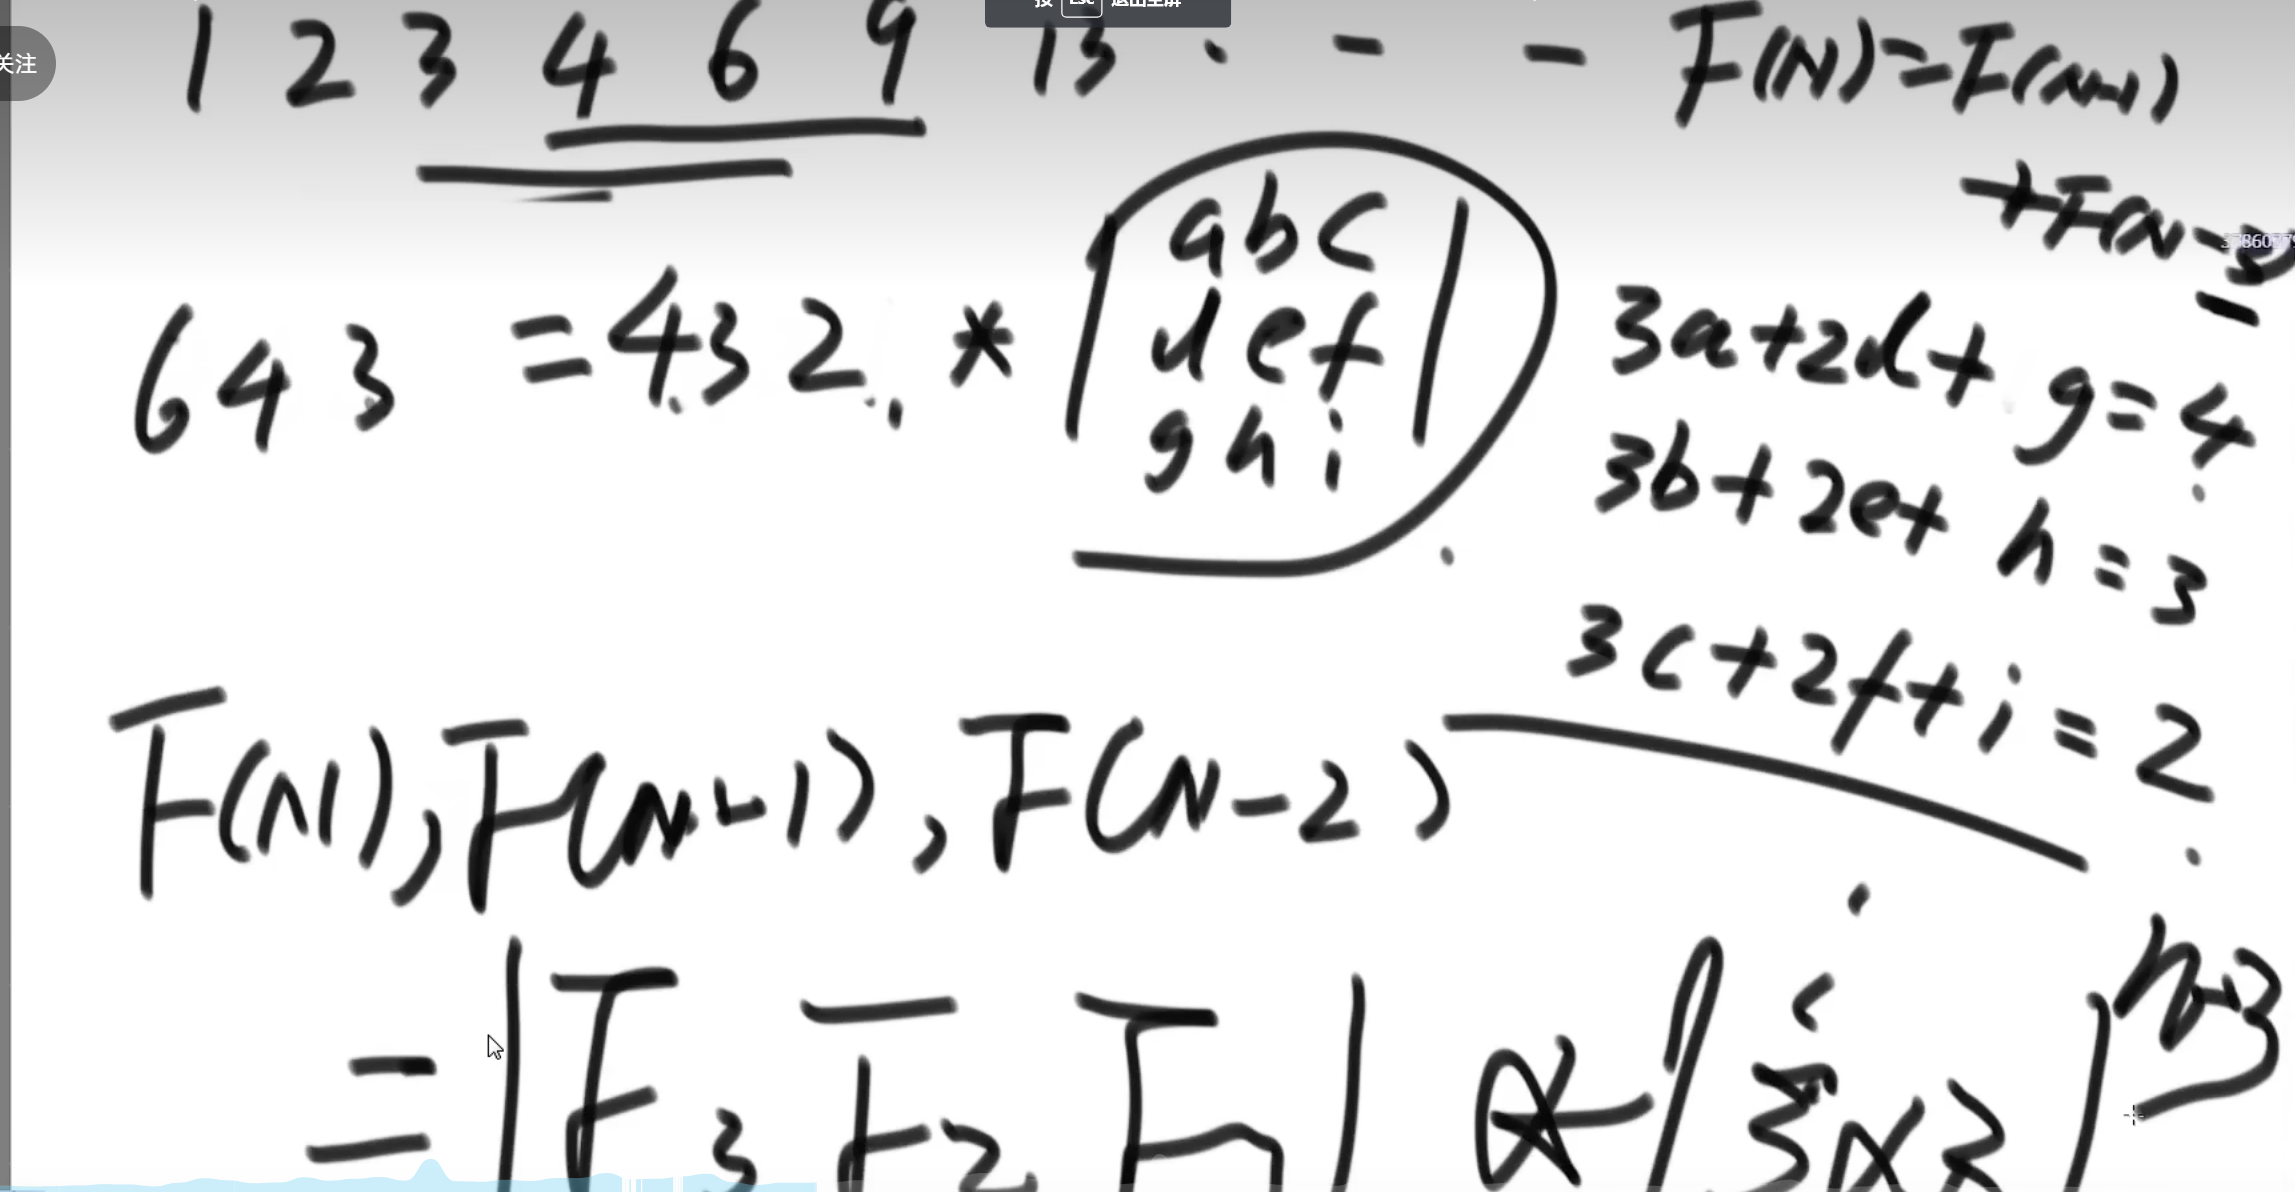 按 Esc 退出全屏
关注
1 2 3 4 6 9 13 . - - F(N)=F(N-1)
+F(N-3)
6 4 3 = 4 3 2 * | a b c
d e f
g h i |
3a+2d+g=4
3b+2e+h=3
3c+2f+i=2
F(N), F(N-1), F(N-2)
= | F3 F2 F1 | * | 3×3 | n-3